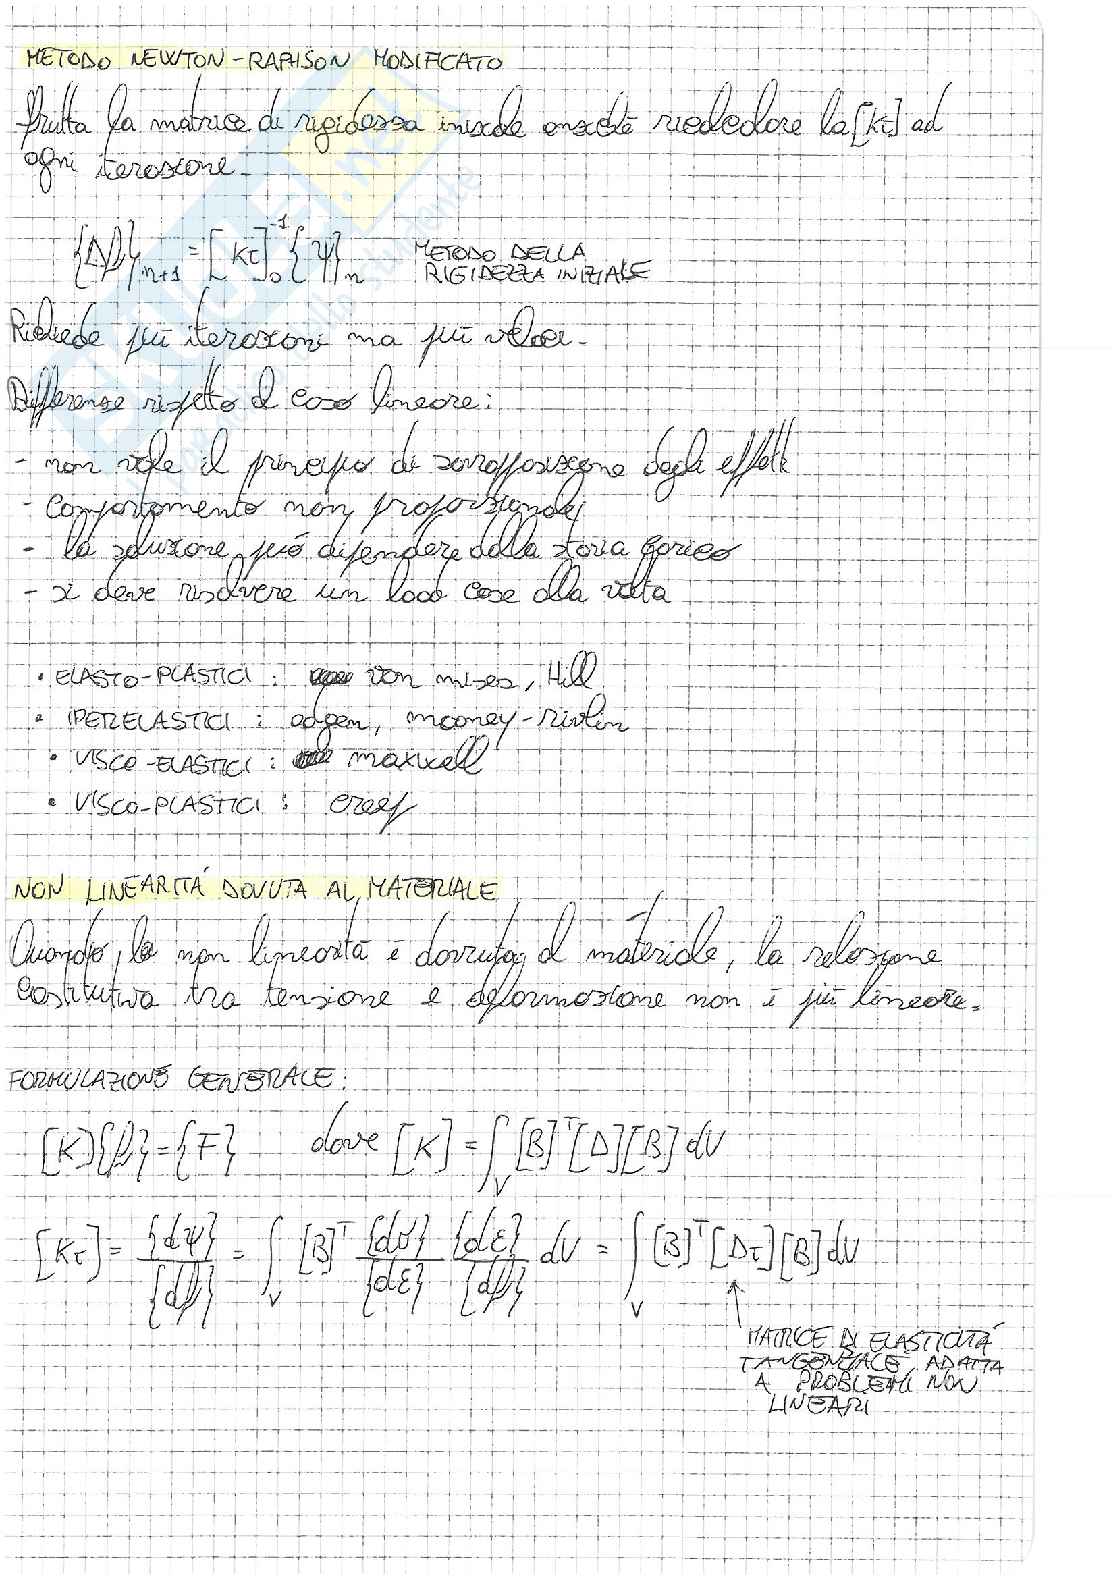 METODO NEWTON-RAPHSON MODIFICATO
frutta la matrice di rigidezza iniziale anziché ricalcolare la [Kτ] ad
ogni iterazione.
{Δβ}n+1 = [Kτ]₀⁻¹ {Ψ}n METODO DELLA
RIGIDEZZA INIZIALE
Richiede più iterazioni ma più veloci.
Differenze rispetto al caso lineare:
- non vale il principio di sovrapposizione degli effetti
- comportamento non proporzionale
- la soluzione può dipendere dalla storia carico
- si deve risolvere un load case alla volta
• ELASTO-PLASTICI : von mises, Hill
• IPERELASTICI : odgen, mooney-rivlin
• VISCO-ELASTICI : maxwell
• VISCO-PLASTICI : creep
NON LINEARITÁ DOVUTA AL MATERIALE
Quando la non linearità è dovuta al materiale, la relazione
costitutiva tra tensione e deformazione non è più lineare.
FORMULAZIONE GENERALE:
[K]{β} = {F} dove [K] = ∫V [B]ᵀ[D][B] dV
[Kτ] = {dΨ}/{dβ} = ∫V [B]ᵀ {dσ}/{dε} {dε}/{dβ} dV = ∫V [B]ᵀ[Dτ][B] dV
MATRICE DI ELASTICITÁ
TANGENZIALE ADATTA
A PROBLEMI NON
LINEARI